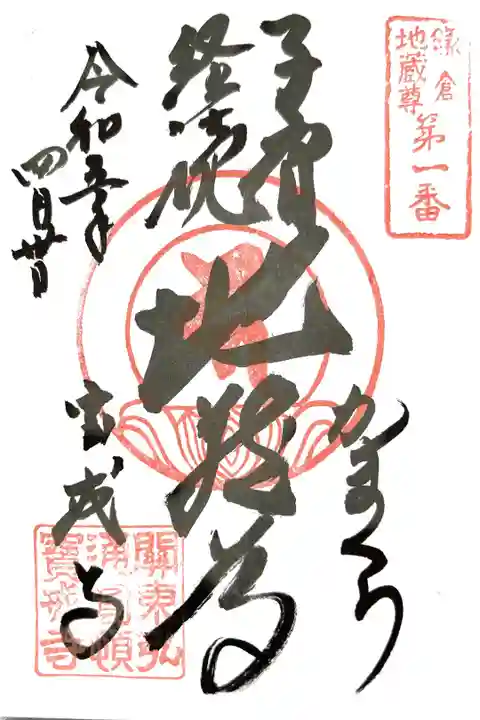 鎌倉
地蔵尊
第一番
子育
経読
地蔵尊
かまくら
令和五年
四月廿日
宝戒寺
關東弘
通圓頓
寶戒寺